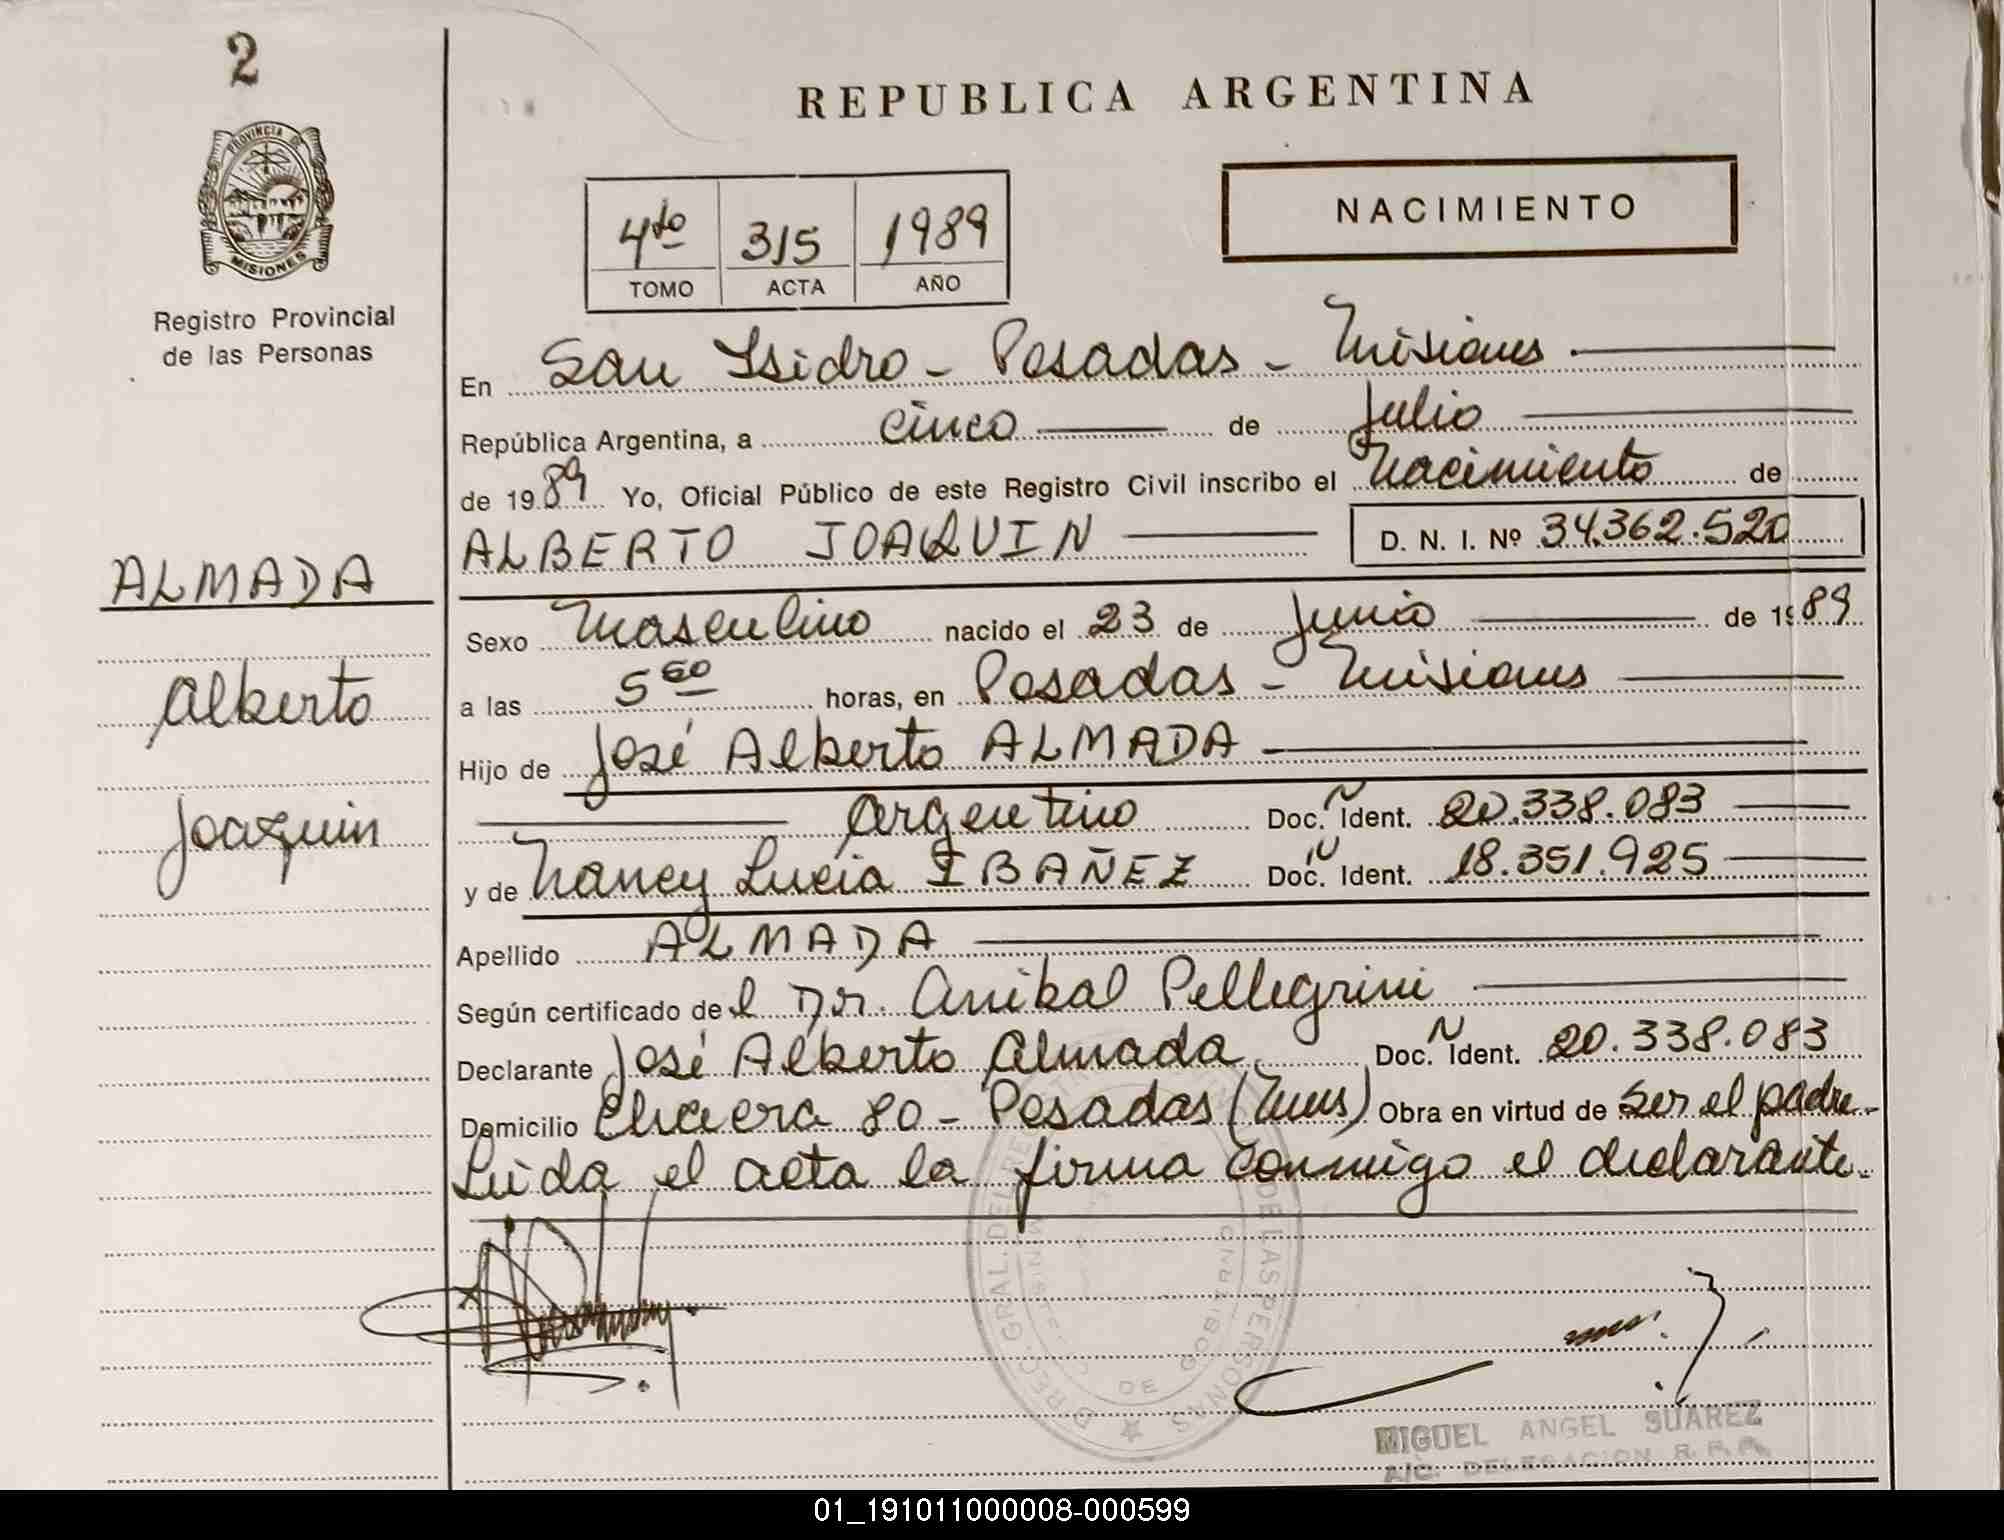 2
PROVINCIA DE
MISIONES
Registro Provincial
de las Personas
REPUBLICA ARGENTINA
NACIMIENTO
4to 315 1989
TOMO ACTA AÑO
En San Isidro - Posadas - Misiones
República Argentina, a cinco de Julio
de 1989 Yo, Oficial Público de este Registro Civil inscribo el Nacimiento de
ALBERTO JOAQUIN D. N. I. Nº 34.362.520
ALMADA
Alberto
Joaquin
Sexo Masculino nacido el 23 de Junio de 1989
a las 5 horas, en Posadas - Misiones
Hijo de José Alberto ALMADA
Argentino Doc. Ident. 20.338.083
y de Nancy Lucia IBAÑEZ Doc. Ident. 18.351.925
Apellido ALMADA
Según certificado del Dr. Anibal Pellegrini
Declarante José Alberto Almada Doc. Ident. 20.338.083
Domicilio Chacra 80 - Posadas (Mnes) Obra en virtud de ser el padre -
Leida el acta la firma conmigo el declarante.
DIREC. GRAL. DEL REG DE LAS PERSONAS
DE GOBIERNO
MIGUEL ANGEL SUAREZ
A/C. DELEGACION R. P. P.
01_191011000008-000599